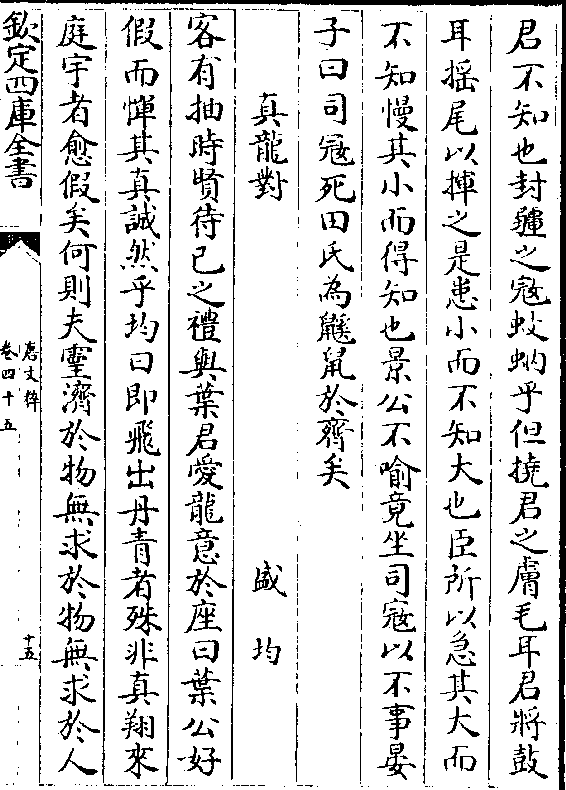 君不知也封疆之寇蚊蚋乎但撓君之膚毛耳君將鼓
耳搖尾以揮之是患小而不知大也臣所以急其大而
不知慢其小而得知也景公不喻竟坐司寇以不事晏
子曰司寇死田氏為鼷鼠於齊矣
真龍對 盛均
客有抽時賢待已之禮與葉君愛龍意於座曰葉公好
假而憚其真誠然乎均曰即飛出丹青者殊非真翔來
庭宇者愈假矣何則夫靈濟於物無求於物無求於人
欽定四庫全書
唐文粹
卷四十五
十五